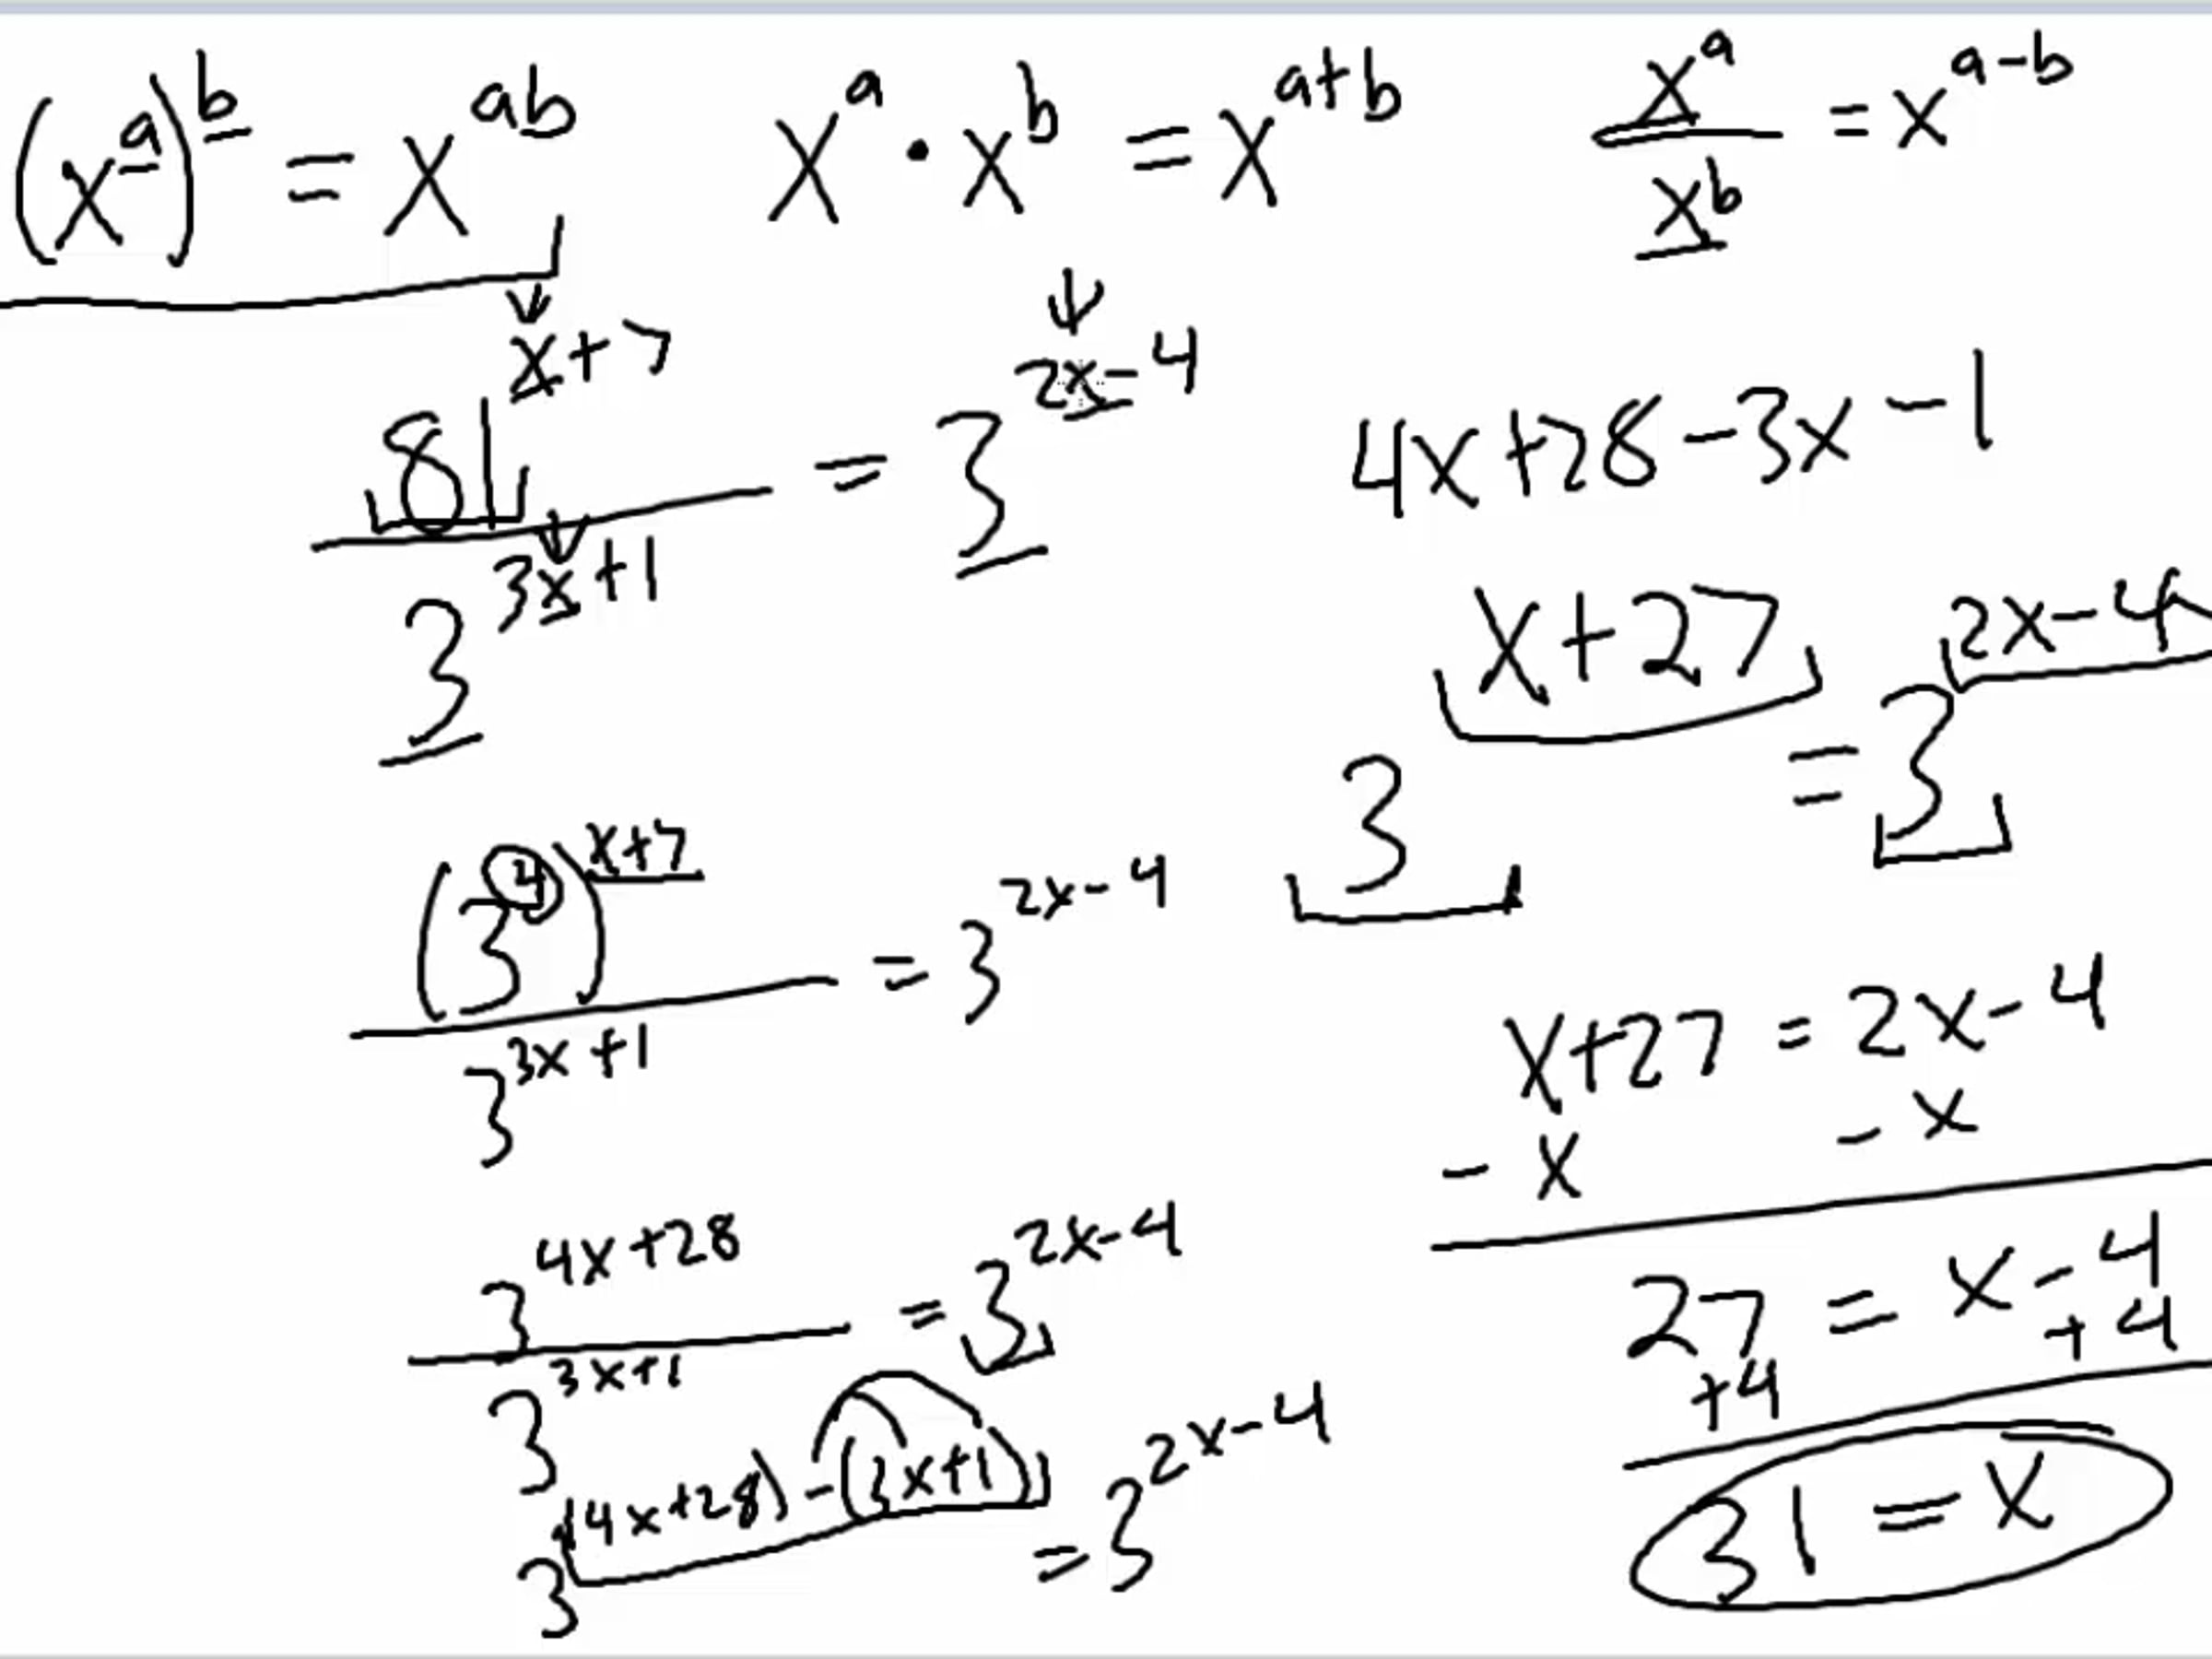 (x^a)^b = x^ab
x^a · x^b = x^a+b
x^a / x^b = x^a-b
81^x+7 / 3^3x+1 = 3^2x-4
(3^4)^x+7 / 3^3x+1 = 3^2x-4
3^4x+28 / 3^3x+1 = 3^2x-4
3^(4x+28)-(3x+1) = 3^2x-4
4x+28-3x-1
3^x+27 = 3^2x-4
x+27 = 2x-4
-x -x
27 = x-4
+4 +4
31 = x